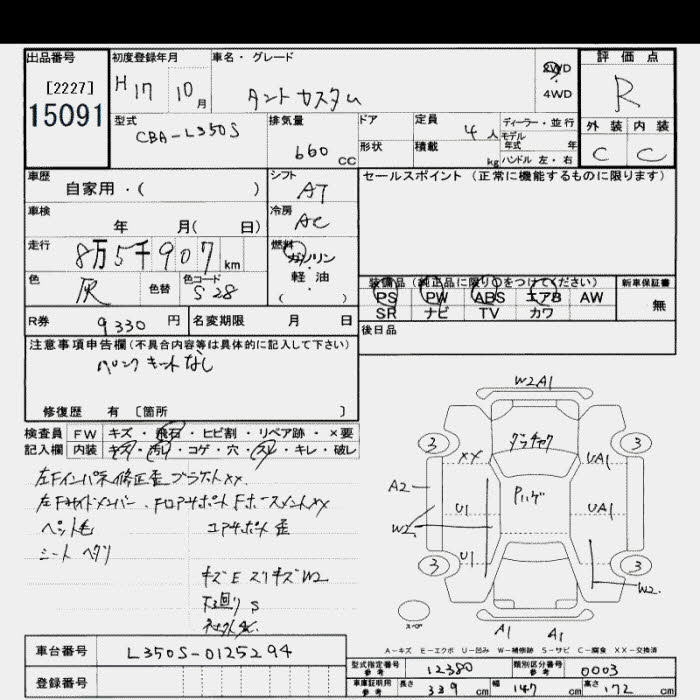 出品番号
[2227]
15091
初度登録年月
H 17 10 月
車名・グレード
タント カスタム
2WD
4WD
評価点
R
外装 内装
C C
型式
CBA-L350S
排気量
660 CC
ドア
形状
定員
4 人
積載
kg
ディーラー・並行
モデル
年式 年
ハンドル 左・右
車歴
自家用・( )
シフト
AT
セールスポイント (正常に機能するものに限ります)
車検
年 月( 日)
冷房
AC
走行
8万5千907 km
燃料
ガソリン
軽・油
( )
色
灰
色替
色コード
S28
装備品 (純正品に限り○をつけてください)
PS PW ABS エアB AW
SR ナビ TV カワ
新車保証書
無
R券
9330 円
名変期限 月 日
後日品
注意事項申告欄(不具合内容等は具体的に記入して下さい)
パンクキットなし
修復歴 有 〔箇所 〕
検査員 FW キズ・飛石・ヒビ割・リペア跡・×要
記入欄 内装 キズ・汚レ・コゲ・穴・スレ・キレ・破レ
左Fインパネ修正歪 ブラケットXX
左Fサイドメンバー、
ペット毛
コアサポート歪
シート ヘタリ
キズE スリキズW2
下回り S
W2A1
3 3
XX
UA1
A2
U1
UA1
W2
U1
W2
3 3
スペア
A1 A1
A-キズ E-エクボ U-凹み W-補修跡 S-サビ C-腐食 XX-交換済
車台番号
L350S-0125294
登録番号
型式指定番号
参考
12380
類別区分番号
参考
0003
車庫証明用
参考
長さ 339 cm 幅 147 cm 高さ 172 cm